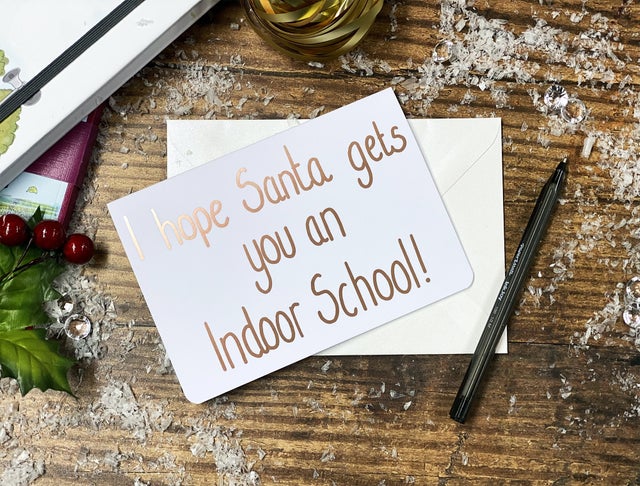 I hope Santa gets
you an
Indoor School!